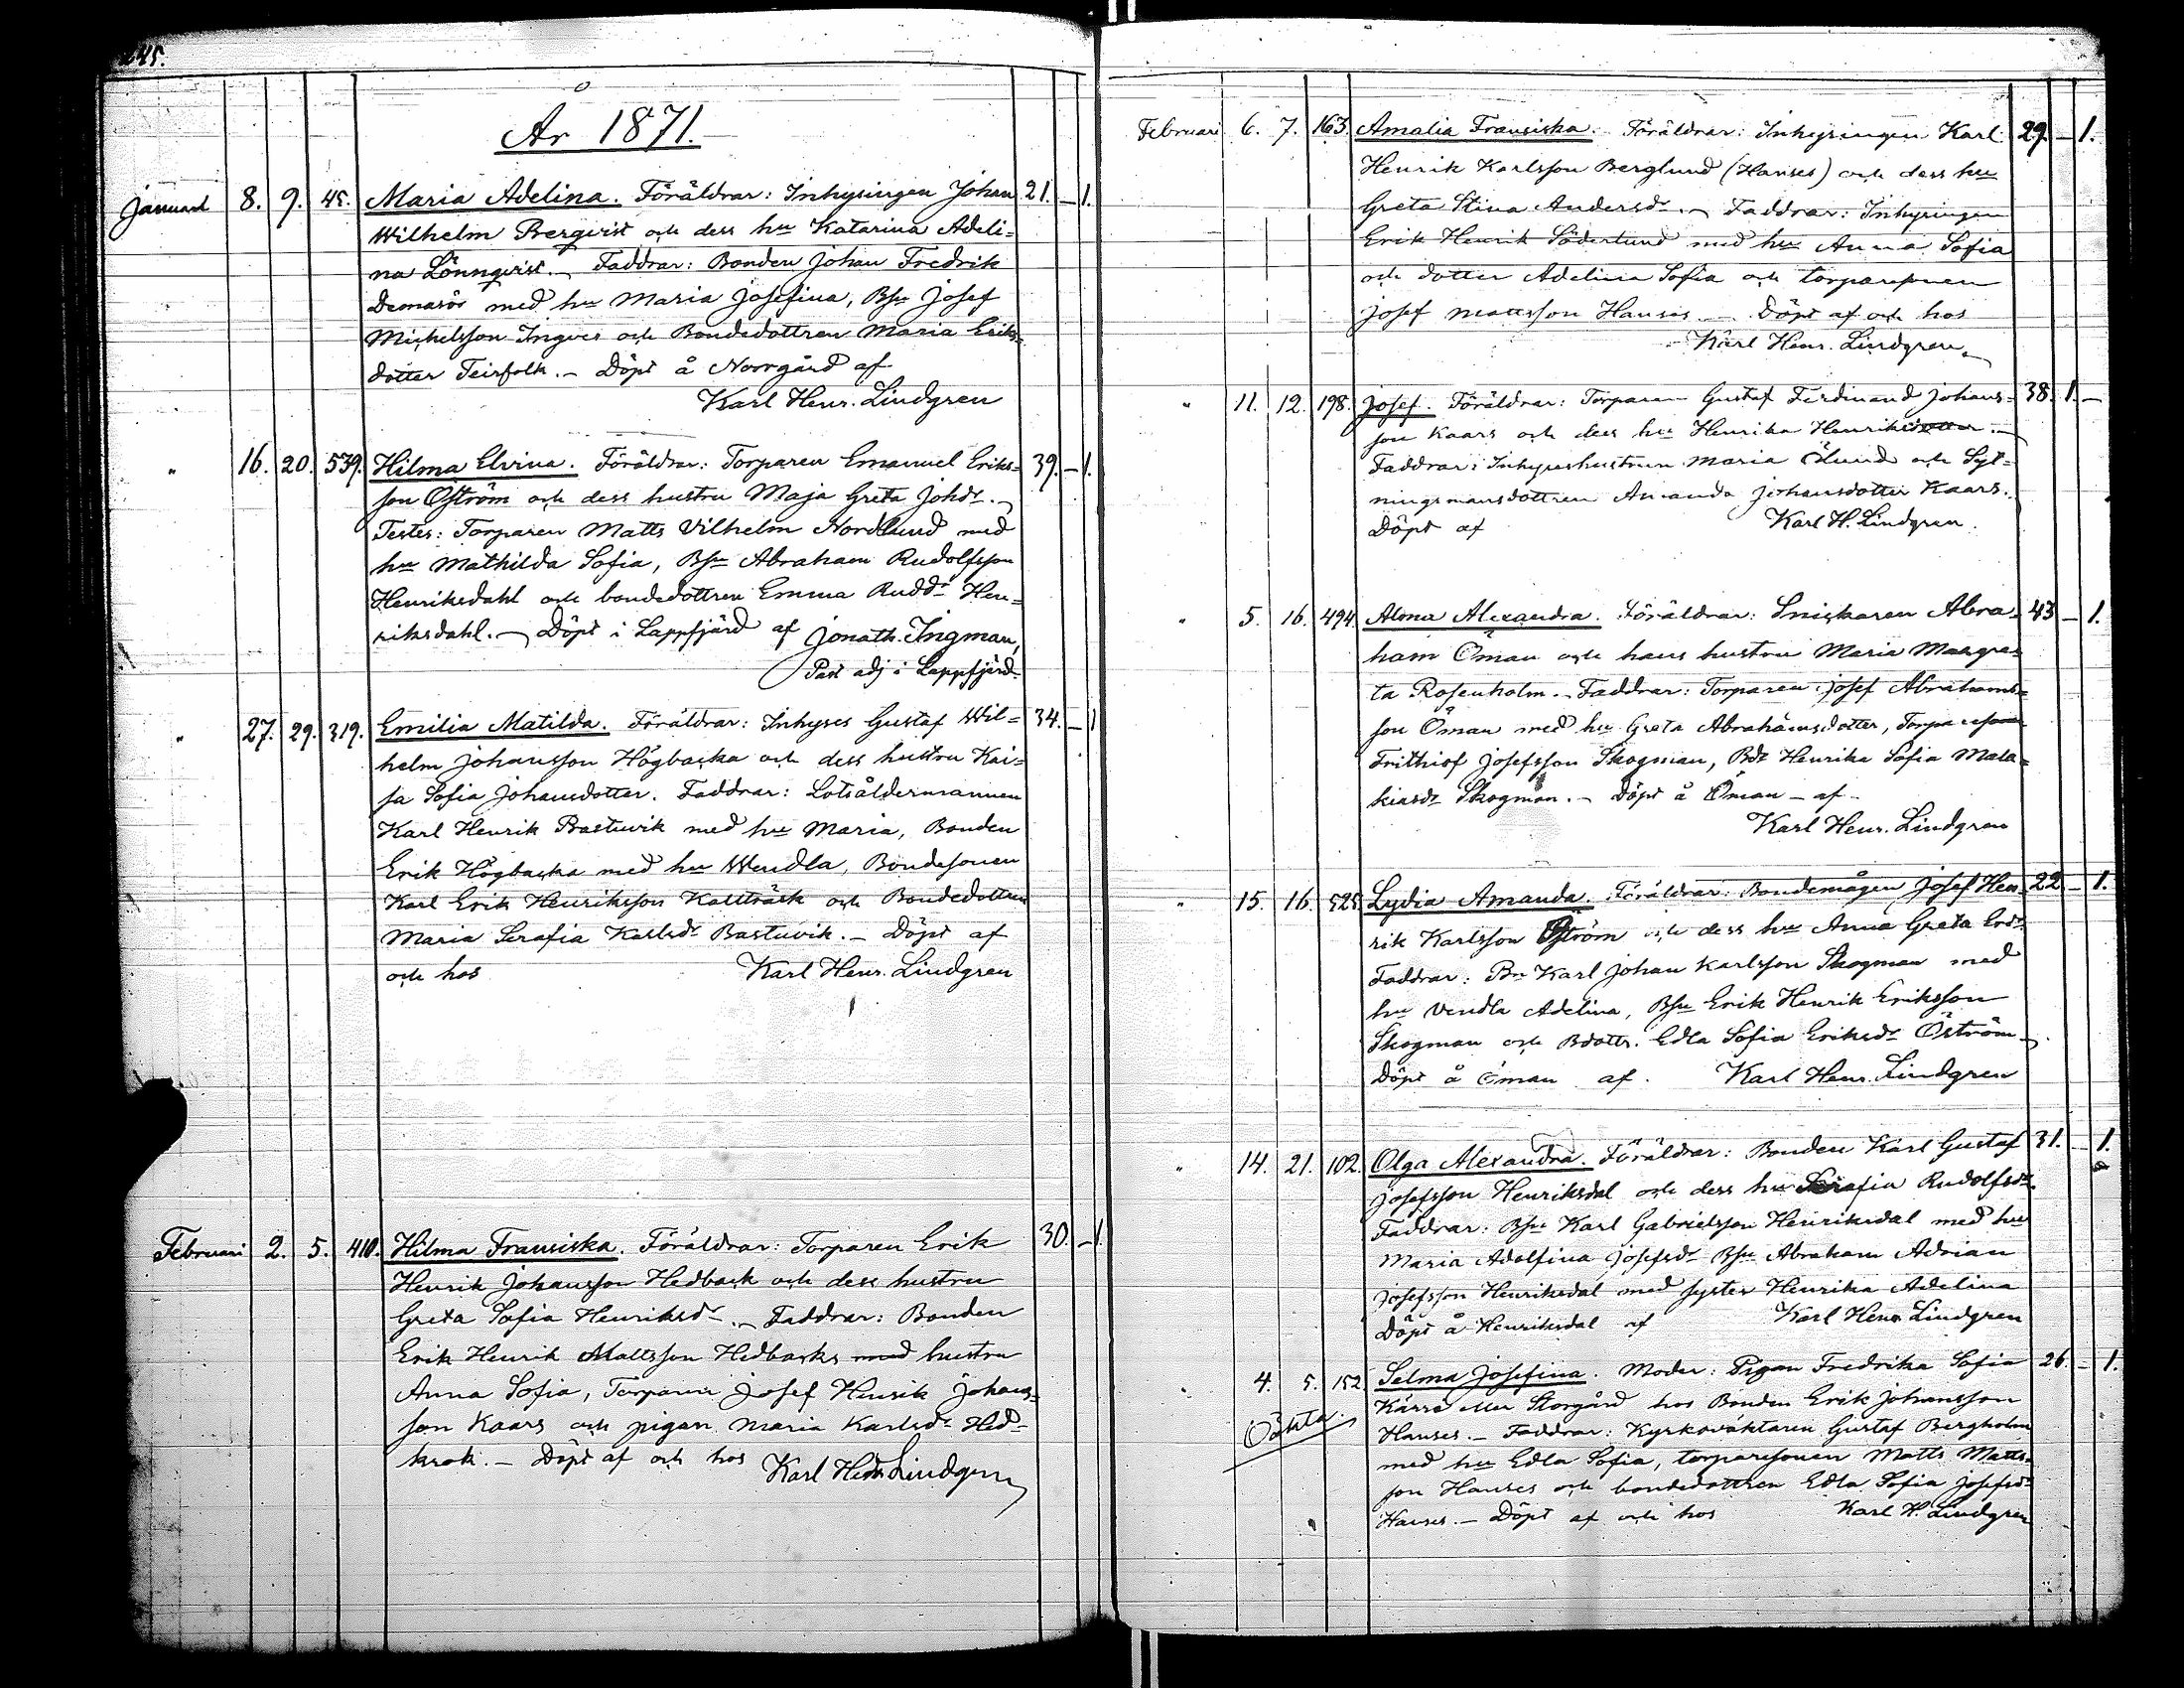 År 1871.
Januari 8. 9. 45. Maria Adelina. Föräldrar: Inhysingen Johan 21. – 1.
Wilhelm Bergqvist och dess hu Katarina Adeli=
na Lönnqvist. – Faddrar: Bonden Johan Fredrik
med hu Maria Josefina, Bsn Josef
Michelsson Ingves och Bondedottren Maria Eriks=
dotter Teirfolk. – Döpt å Norrgård af
Karl Henr. Lindgren
" 16. 20. 539. Hilma Elvina. Föräldrar: Torparen Emanuel Eriks= 39. – 1.
son Öström och dess hustru Maja Greta Johdr. –
Testes: Torparen Matts Vilhelm Nordlund med
hu Mathilda Sofia, Bsn Abraham Rudolfsson
Henriksdahl och bondedottren Emma Ruddr Hen=
riksdahl. – Döpt i Lappfjärd af Jonath. Ingman,
Past adj i Lappfjärd.
" 27. 29. 319. Emilia Matilda. Föräldrar: Inhyses Gustaf Wil= 34. – 1
helm Johansson Högbacka och dess hustru Kai=
sa Sofia Johansdotter. Faddrar: Lotsåldermannen
Karl Henrik Bastuvik med hu Maria, Bonden
Erik Högbacka med hu Wendla, Bondesonen
Karl Erik Henriksson Kallträsk och Bondedottren
Maria Serafia Karlsdr Bastuvik. – Döpt af
och hos Karl Henr. Lindgren
Februari 2. 5. 410. Hilma Fransiska. Föräldrar: Torparen Erik 30. – 1.
Henrik Johansson Hedback och dess hustru
Greta Sofia Henriksdr. – Faddrar: Bonden
Erik Henrik Mattsson Hedbacks med hustru
Anna Sofia, Torparen Josef Henrik Johans=
son Kaars och pigan Maria Karlsdr Hed=
krok. – Döpt af och hos Karl Henr Lindgren
Februari 6. 7. 163. Amalia Fransiska. Föräldrar: Inhysingen Karl 29. – 1.
Henrik Karlsson Berglund (Hanses) och dess hu
Greta Stina Andersdr. – Faddrar: Inhysingen
Erik Henrik Söderlund med hu Anna Sofia
och dotter Adelina Sofia och torparesonen
Josef Mattsson Hanses – Döpt af och hos
Karl Henr. Lindgren.
" 11. 12. 198. Josef. Föräldrar: Torparen Gustaf Ferdinand Johans= 38. 1. –
son Kaars och dess hu Henrika Henriksdotter. –
Faddrar: Inhyseshustrun Maria Ölund och Syt=
ningsmansdottren Amanda Johansdotter Kaars.
Döpt af Karl H. Lindgren.
" 5. 16. 494. Alma Alexandra. Föräldrar: Snickaren Abra= 43 – 1.
ham Öman och hans hustru Maria Margre=
ta Rosenholm. – Faddrar: Torparen Josef Abrahams=
son Öman med hu Greta Abrahamsdotter, Torparesonen
Frithiof Josefsson Skogman, Bdr Henrika Sofia Mala=
kiasdr Skogman. – Döpt å Öman – af –
Karl Henr. Lindgren
" 15. 16. 525. Lydia Amanda. Föräldrar: Bondemågen Josef Hen= 22 – 1.
rik Karlsson Öström och dess hu Anna Greta Erdr.
Faddrar: Bn Karl Johan Karlsson Skogman med
hu Vendla Adelina, Bsn Erik Henrik Eriksson
Skogman och Bdottr. Edla Sofia Eriksdr Öström –
Döpt å Öman af. Karl Henr. Lindgren
" 14. 21. 102. Olga Alexandra. Föräldrar: Bonden Karl Gustaf 31. – 1.
Josefsson Henriksdal och dess hu Serafia Rudolfsdr.
Faddrar: Bsn Karl Gabrielsson Henriksdal med hu
Maria Adolfina Josefsdr Bsn Abraham Adrian
Josefsson Henriksdal med syster Henrika Adelina
Döpt å Henriksdal af Karl Henr Lindgren
" 4. 5. 152. Selma Josefina. Moder: Pigan Fredrika Sofia 26. – 1.
Oäkta. Kärre eller Storgård hos Bonden Erik Johansson
Hanses. – Faddrar: Kyrkoväktaren Gustaf Bergholm
med hu Edla Sofia, torparesonen Matts Matts=
son Hanses och bondedottren Edla Sofia Josefsdr
Hanses. – Döpt af och hos Karl H. Lindgren